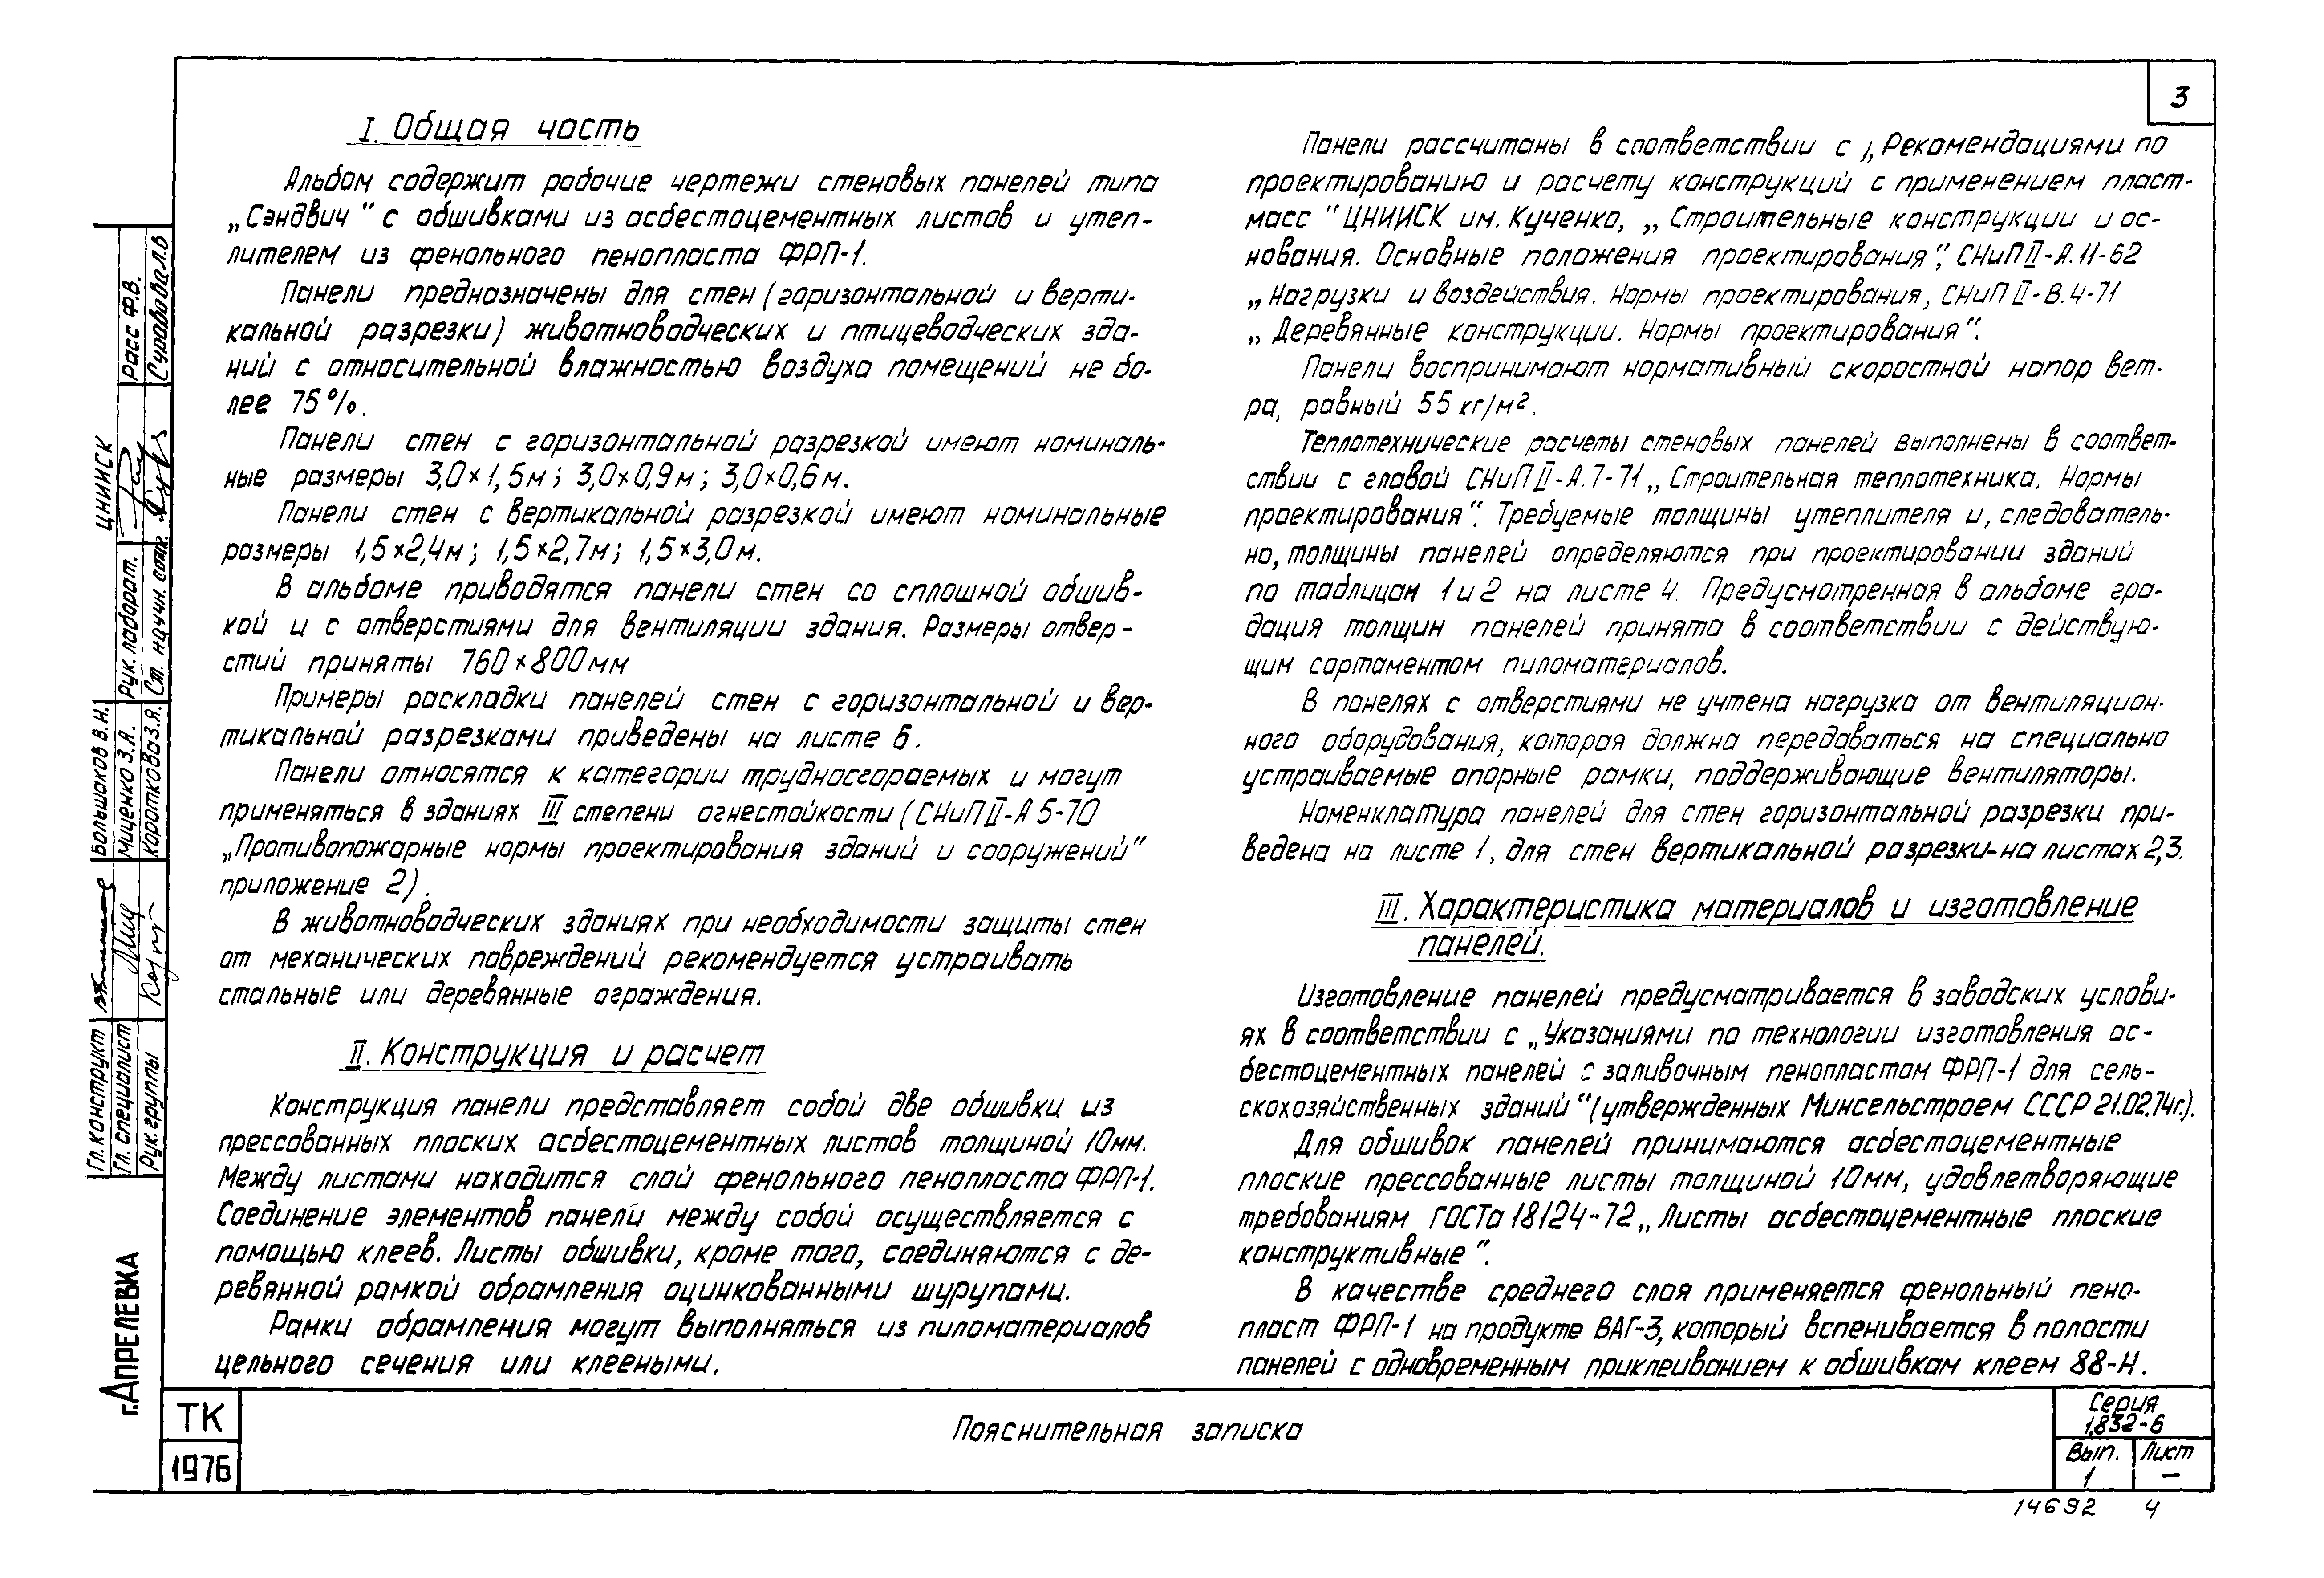 3
I. Общая часть
Альбом содержит рабочие чертежи стеновых панелей типа
„Сэндвич“ с обшивками из асбестоцементных листов и утеп-
лителем из фенольного пенопласта ФРП-1.
Панели предназначены для стен (горизонтальной и верти-
кальной разрезки) животноводческих и птицеводческих зда-
ний с относительной влажностью воздуха помещений не бо-
лее 75%.
Панели стен с горизонтальной разрезкой имеют номиналь-
ные размеры 3,0×1,5м; 3,0×0,9м; 3,0×0,6м.
Панели стен с вертикальной разрезкой имеют номинальные
размеры 1,5×2,4м; 1,5×2,7м; 1,5×3,0м.
В альбоме приводятся панели стен со сплошной обшив-
кой и с отверстиями для вентиляции здания. Размеры отвер-
стий приняты 760×800мм
Примеры раскладки панелей стен с горизонтальной и вер-
тикальной разрезками приведены на листе 6.
Панели относятся к категории трудносгораемых и могут
применяться в зданиях III степени огнестойкости (СНиП II-А 5-70
„Противопожарные нормы проектирования зданий и сооружений“
приложение 2).
В животноводческих зданиях при необходимости защиты стен
от механических повреждений рекомендуется устраивать
стальные или деревянные ограждения.
II. Конструкция и расчет
Конструкция панели представляет собой две обшивки из
прессованных плоских асбестоцементных листов толщиной 10мм.
Между листами находится слой фенольного пенопласта ФРП-1.
Соединение элементов панели между собой осуществляется с
помощью клеев. Листы обшивки, кроме того, соединяются с де-
ревянной рамкой обрамления оцинкованными шурупами.
Рамки обрамления могут выполняться из пиломатериалов
цельного сечения или клееными.
Панели рассчитаны в соответствии с „Рекомендациями по
проектированию и расчету конструкций с применением пласт-
масс“ ЦНИИСК им. Кученко, „Строительные конструкции и ос-
нования. Основные положения проектирования“, СНиП II-А.11-62
„Нагрузки и воздействия. Нормы проектирования, СНиП II-В.4-71
„Деревянные конструкции. Нормы проектирования“.
Панели воспринимают нормативный скоростной напор вет-
ра, равный 55 кг/м².
Теплотехнические расчеты стеновых панелей выполнены в соответ-
ствии с главой СНиП II-А.7-71 „Строительная теплотехника. Нормы
проектирования“. Требуемые толщины утеплителя и, следователь-
но, толщины панелей определяются при проектировании зданий
по таблицам 1 и 2 на листе 4. Предусмотренная в альбоме гра-
дация толщин панелей принята в соответствии с действую-
щим сортаментом пиломатериалов.
В панелях с отверстиями не учтена нагрузка от вентиляцион-
ного оборудования, которая должна передаваться на специально
устраиваемые опорные рамки, поддерживающие вентиляторы.
Номенклатура панелей для стен горизонтальной разрезки при-
ведена на листе 1, для стен вертикальной разрезки-на листах 2,3.
III. Характеристика материалов и изготовление
панелей.
Изготовление панелей предусматривается в заводских услови-
ях в соответствии с „Указаниями по технологии изготовления ас-
бестоцементных панелей с заливочным пенопластом ФРП-1 для сель-
скохозяйственных зданий“ (утвержденных Минсельстроем СССР 21.02.74г.).
Для обшивок панелей принимаются асбестоцементные
плоские прессованные листы толщиной 10мм, удовлетворяющие
требованиям ГОСТа 18124-72 „Листы асбестоцементные плоские
конструктивные“.
В качестве среднего слоя применяется фенольный пено-
пласт ФРП-1 на продукте ВАГ-3, который вспенивается в полости
панелей с одновременным приклеиванием к обшивкам клеем 88-Н.
ЦНИИСК
Рук. лаборат. Расс Ф.В.
Ст. научн. сотр. Суровова Л.В
Гл. конструкт Большаков В.Н.
Гл. специалист Миценко З.А.
Рук. группы Короткова З.Я.
г. АПРЕЛЕВКА
ТК
1976
Пояснительная записка
Серия
1.832-6
Вып. Лист
1 —
14692 4